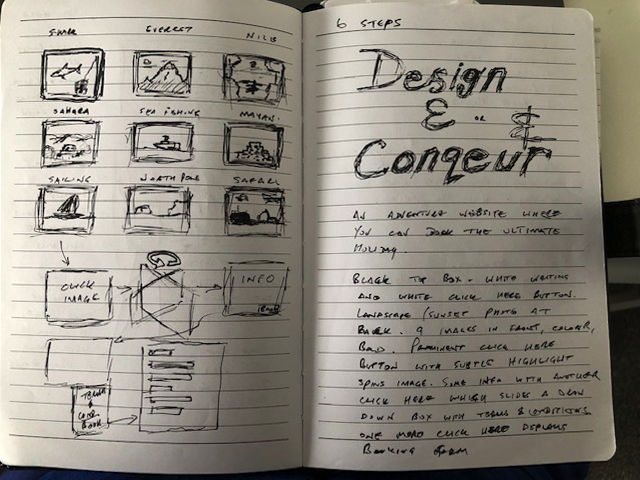 SHARK EVEREST NILE
SAHARA SEA FISHING MAYAN
SAILING NORTH POLE SAFARI
CLICK
IMAGE
INFO
BOOK
TERMS
&
COND.
BOOK
6 STEPS
Design
& OR &
Conqeur
AN ADVENTURE WEBSITE WHERE
YOU CAN BOOK THE ULTIMATE
HOLIDAY.
BLACK TOP BOX. WHITE WRITING
AND WHITE CLICK HERE BUTTON.
LANDSCAPE/SUNSET PHOTO AT
BACK. 9 IMAGES IN FRONT, COLOUR,
BOLD. PROMINENT CLICK HERE
BUTTON WITH SUBTLE HIGHLIGHT
SPINS IMAGE. SOME INFO WITH ANOTHER
CLICK HERE WHICH SLIDES A DRAW
DOWN BOX WITH TERMS & CONDITIONS
ONE MORE CLICK HERE DISPLAYS
BOOKING FORM